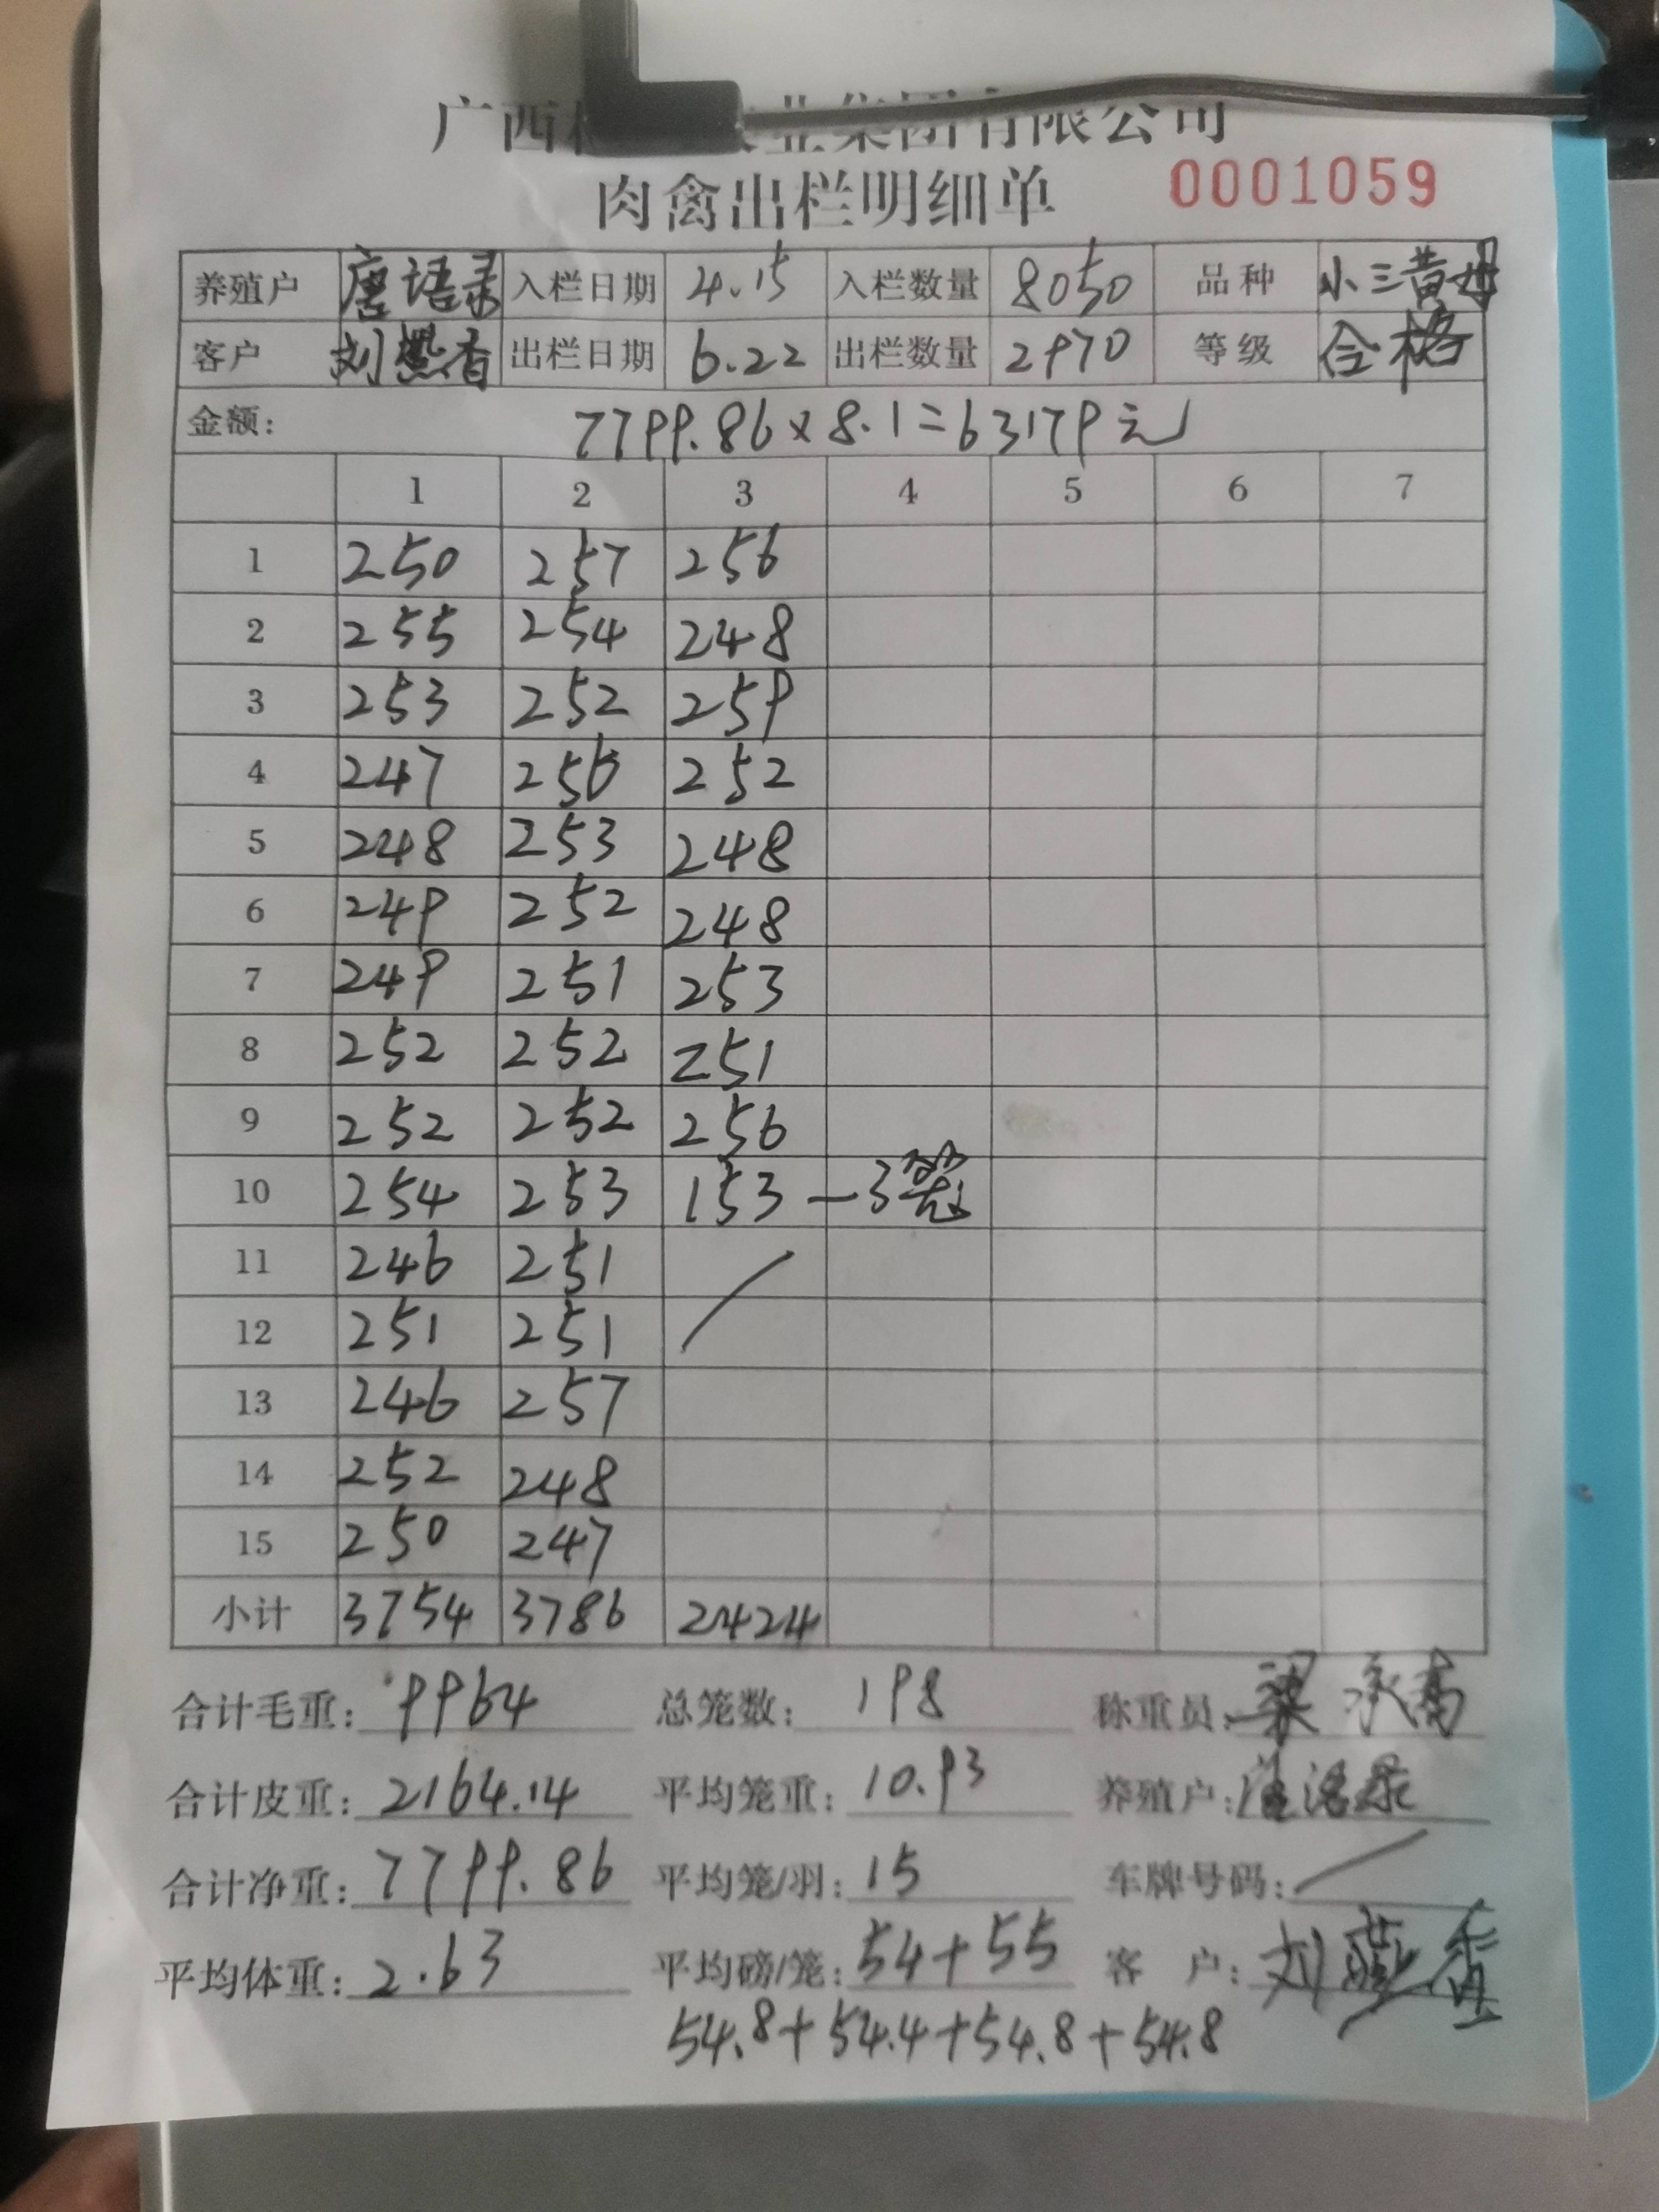 广西 业集团有限公司
肉禽出栏明细单 0001059
养殖户 唐语录 入栏日期 4.15 入栏数量 8050 品种 小三黄母
客户 刘燕香 出栏日期 6.22 出栏数量 2970 等级 合格
金额: 7799.86×8.1=63179元
1 2 3 4 5 6 7
1 250 257 256
2 255 254 248
3 253 252 259
4 247 256 252
5 248 253 248
6 249 252 248
7 249 251 253
8 252 252 251
9 252 252 256
10 254 253 153 — 3笼
11 246 251
12 251 251
13 246 257
14 252 248
15 250 247
小计 3754 3786 2424
合计毛重: 9964 总笼数: 198 称重员: 梁承
合计皮重: 2164.14 平均笼重: 10.93 养殖户:
合计净重: 7799.86 平均笼/羽: 15 车牌号码: /
平均体重: 2.63 平均磅/笼: 54+55 客 户: 刘燕香
54.8+54.4+54.8+54.8